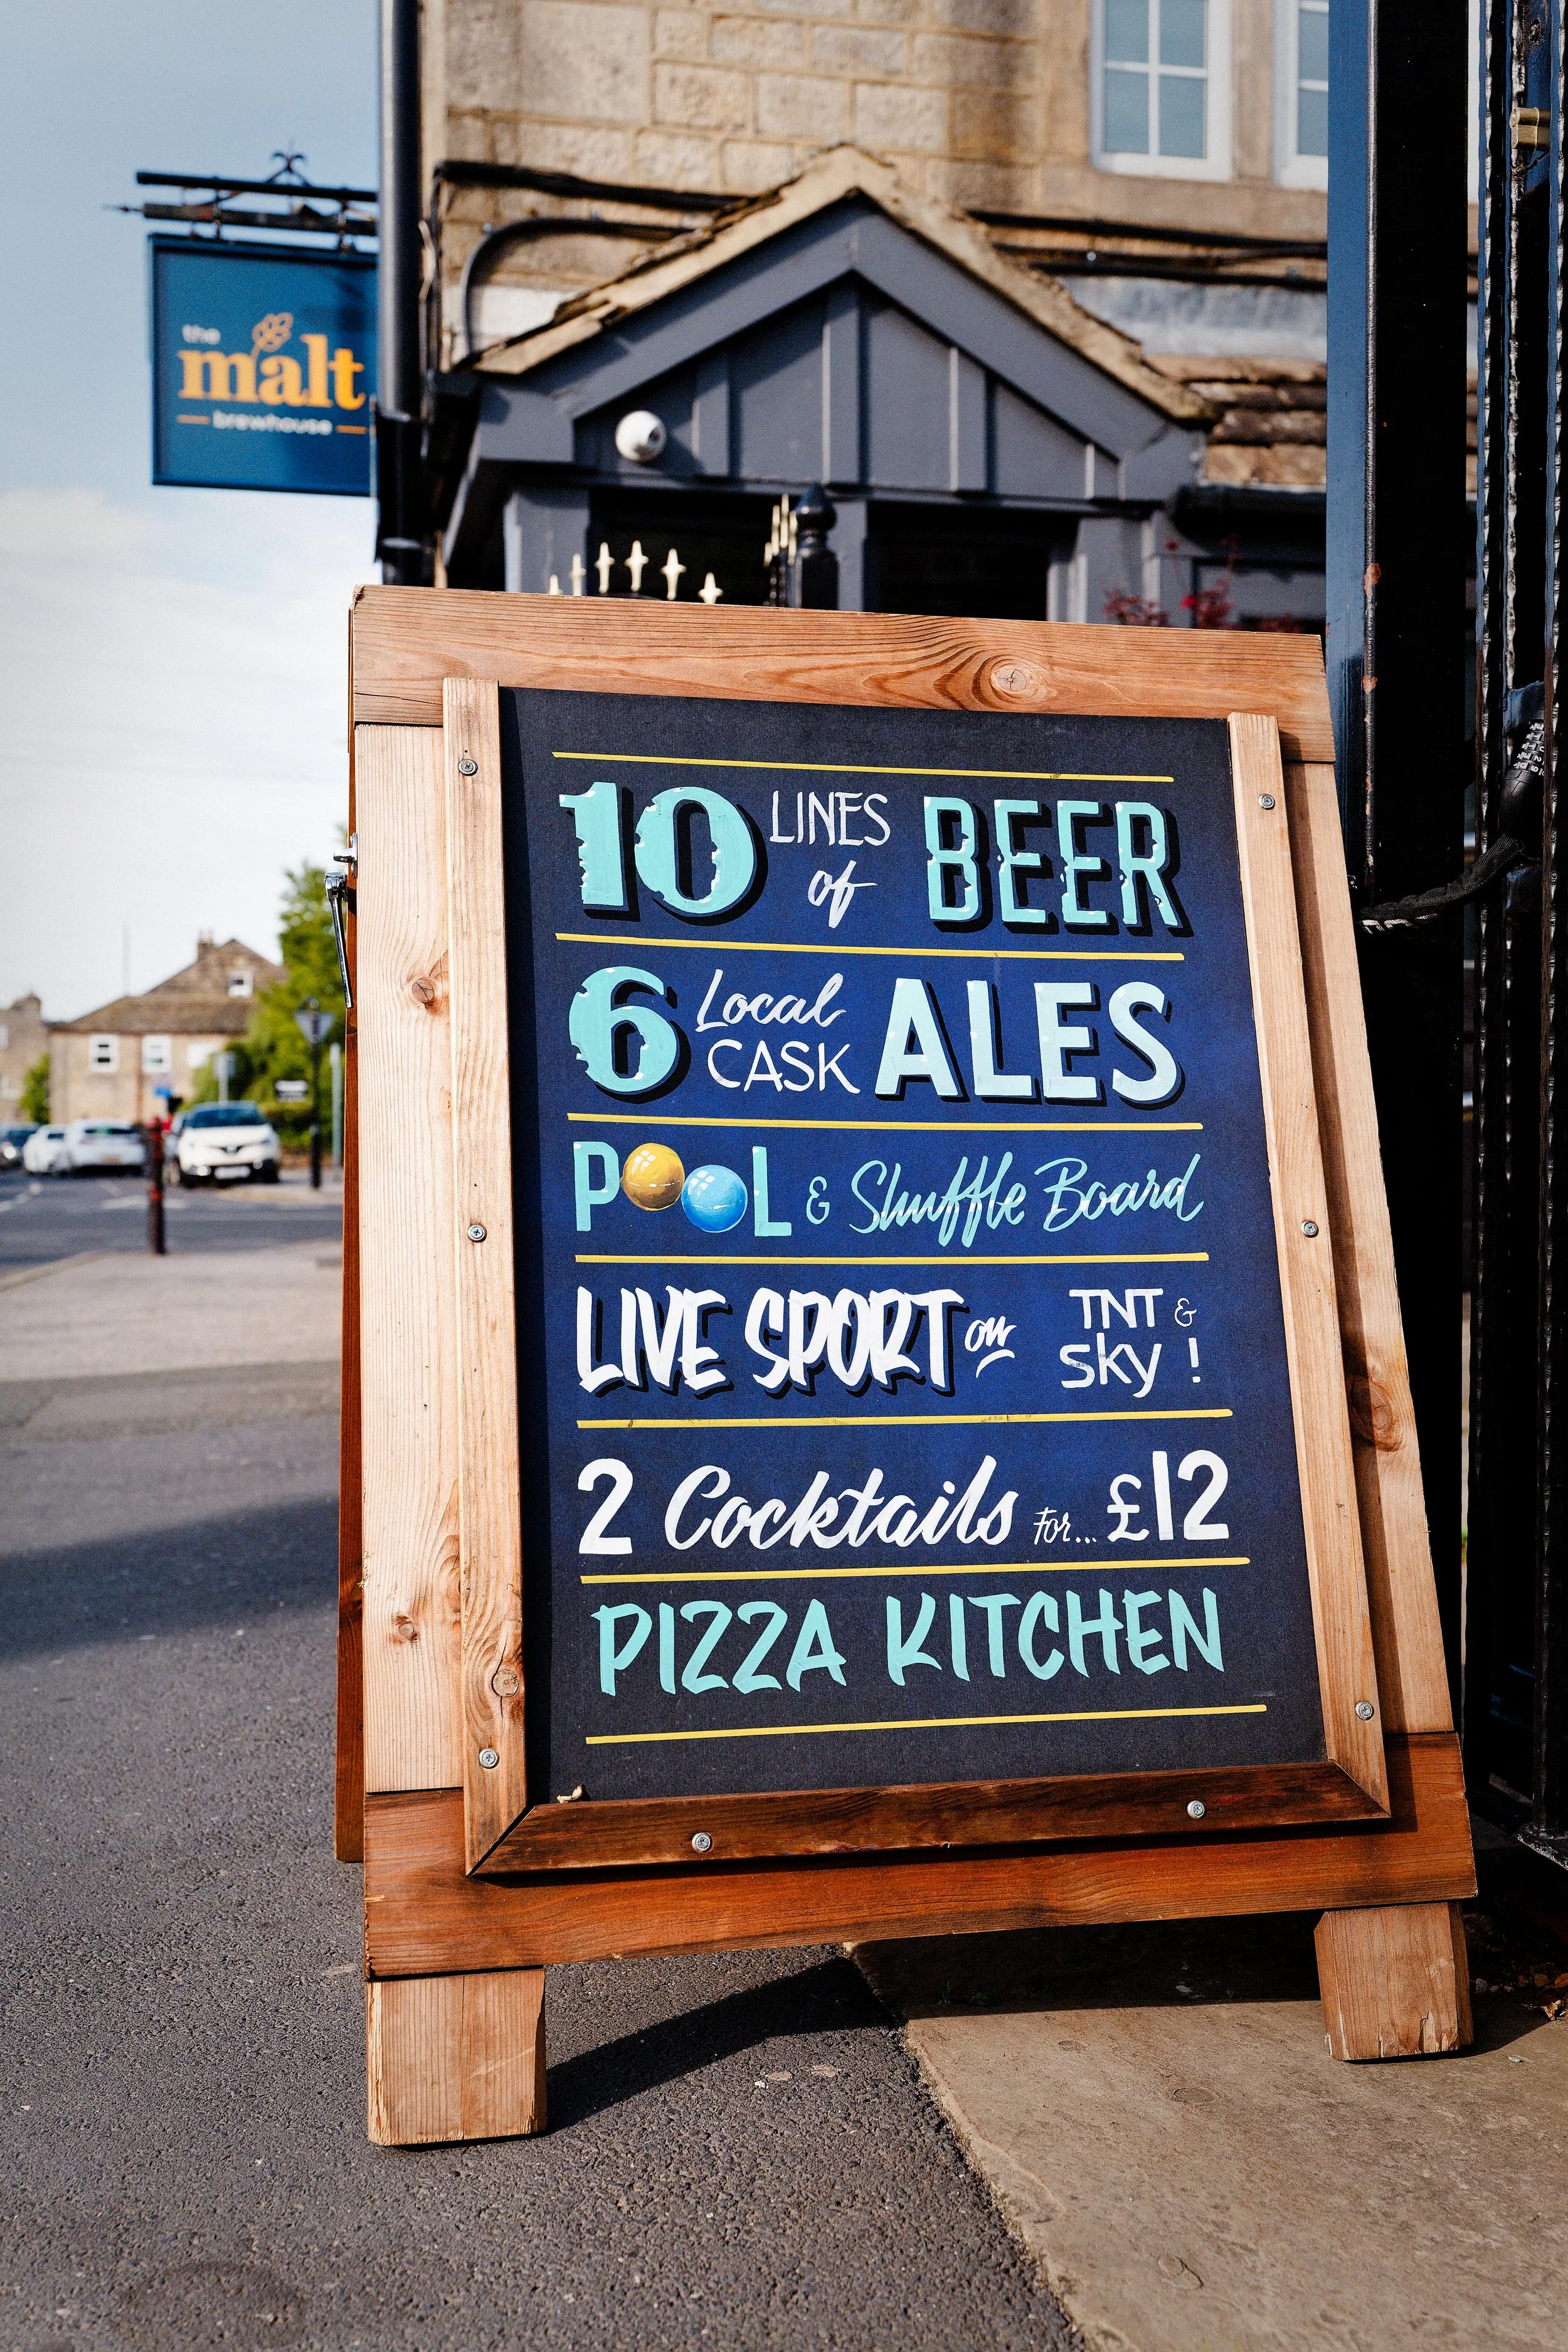 the
malt
brewhouse
10 LINES of BEER
6 Local CASK ALES
POOL & Shuffle Board
LIVE SPORT on TNT & sky !
2 Cocktails For... £12
PIZZA KITCHEN